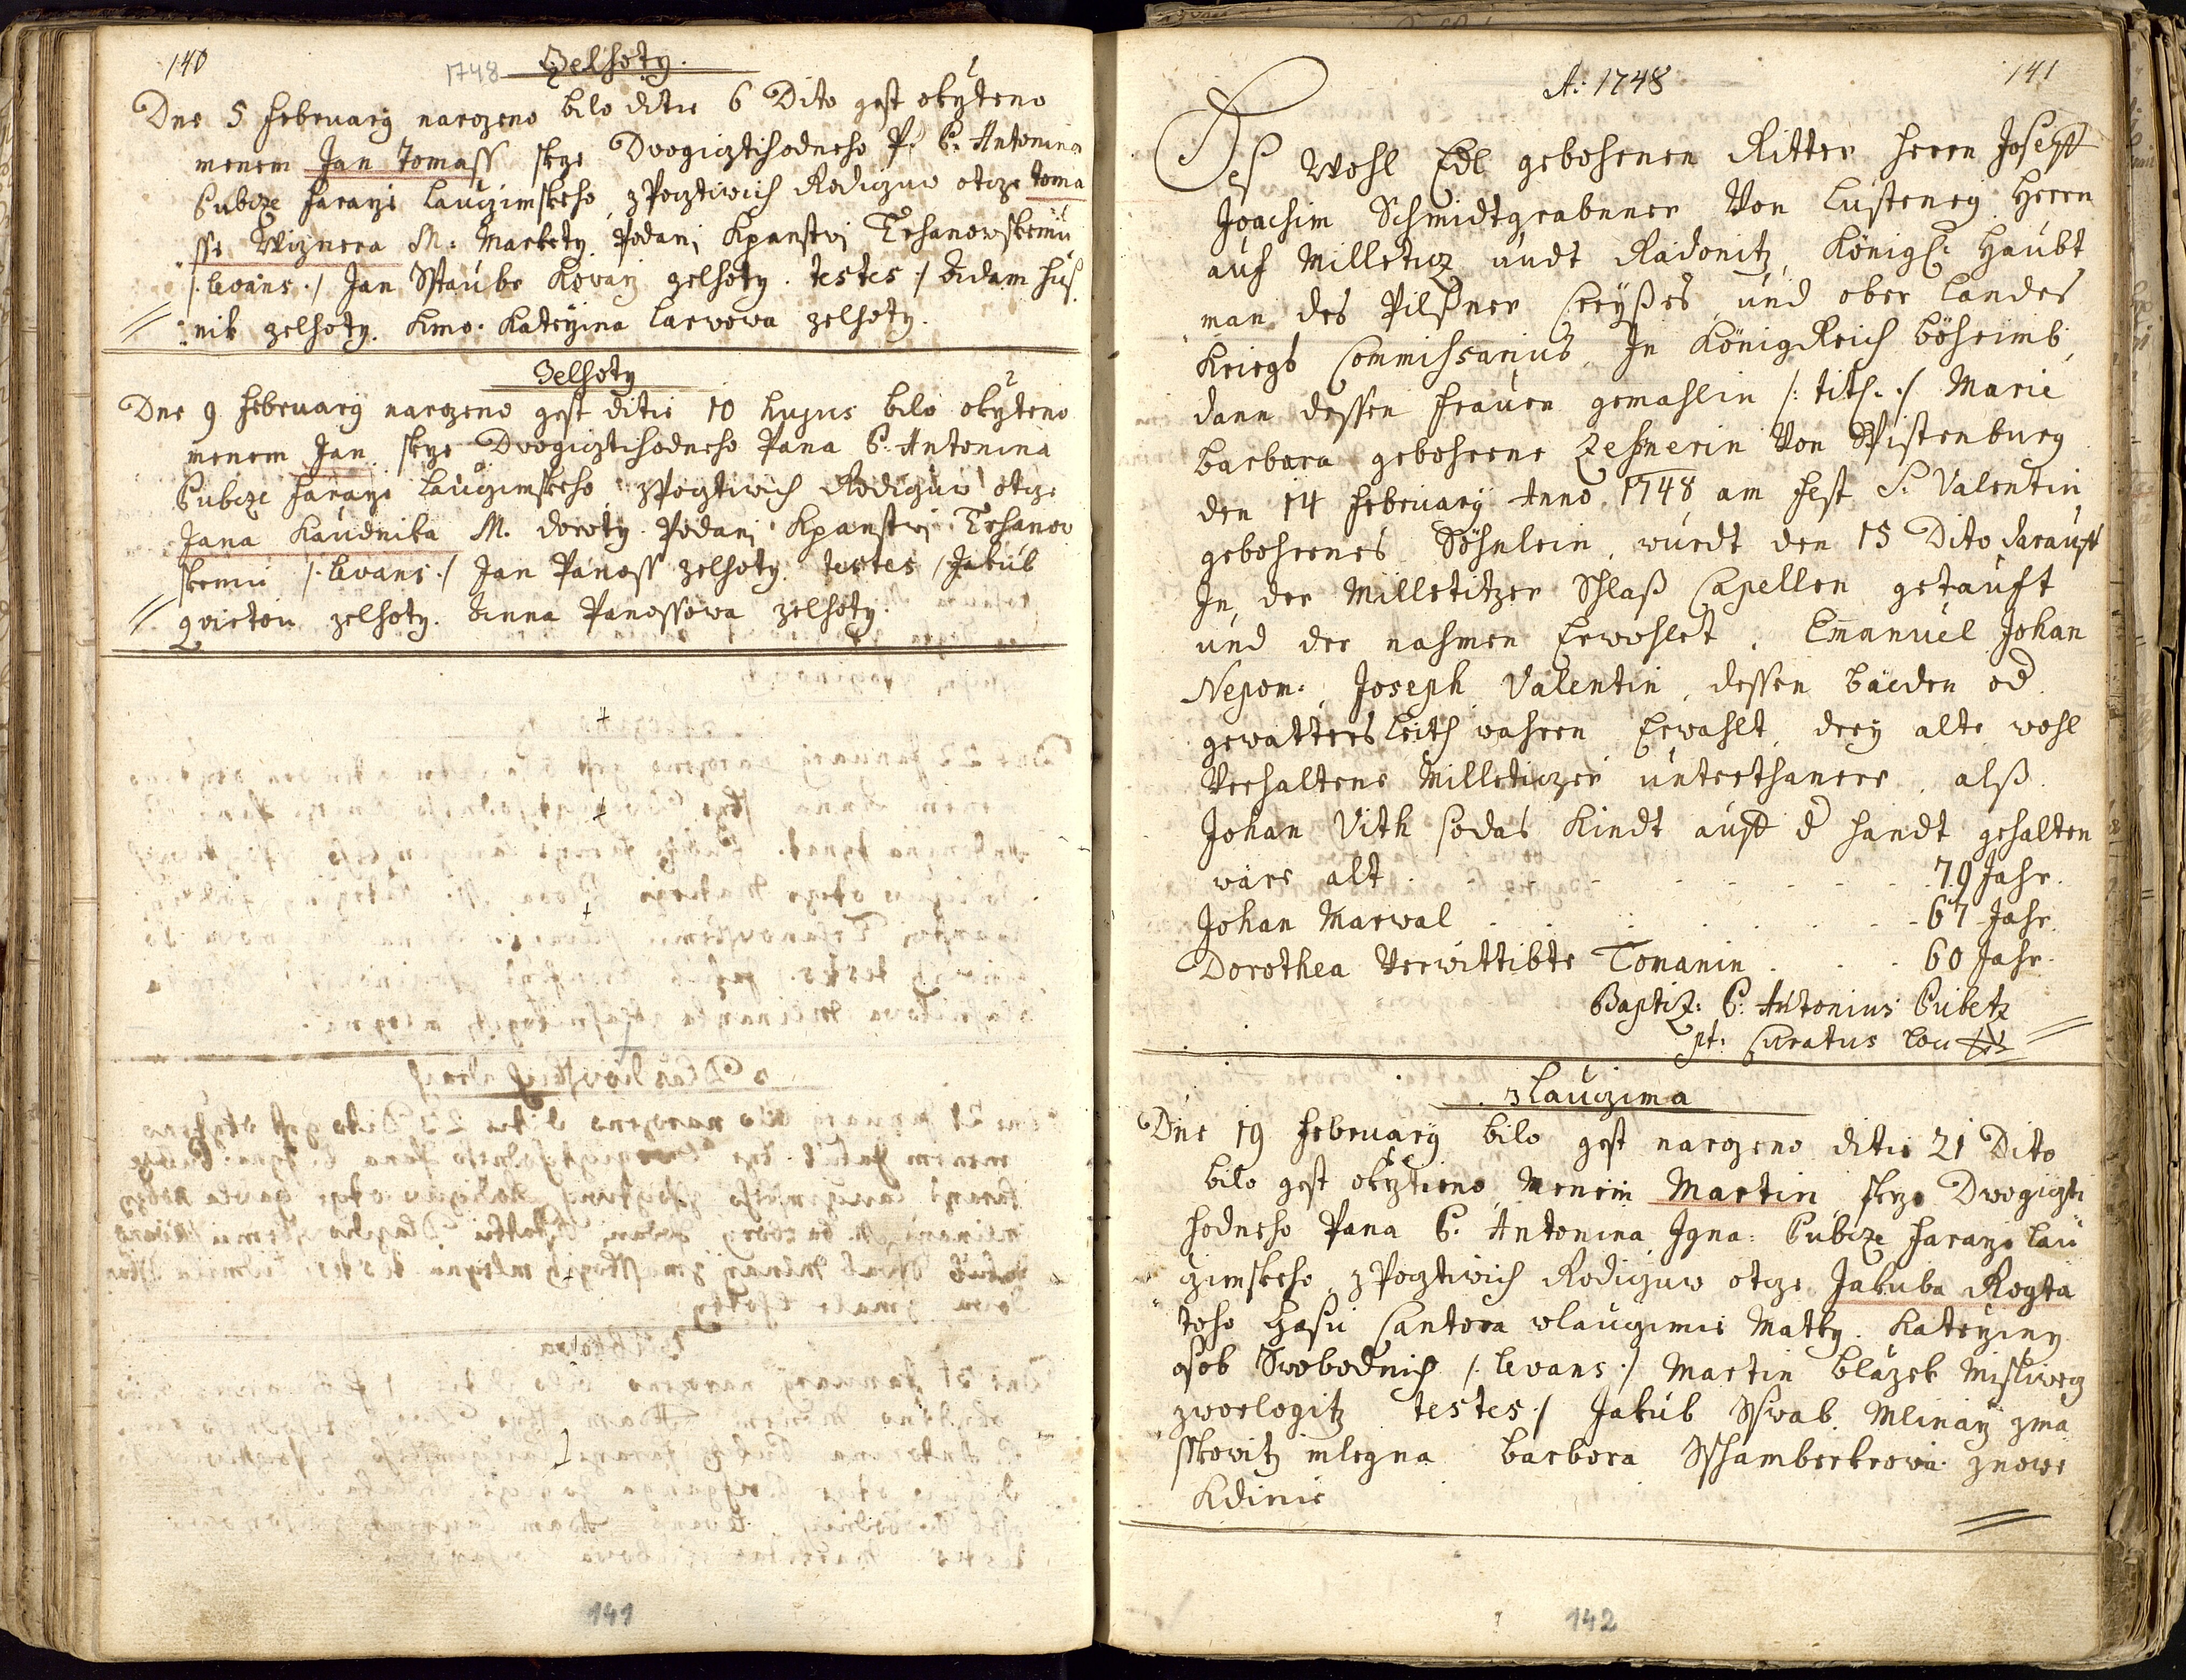 140
1748 Zelhoty.
Dne 5 februarij narozeno bilo ditie 6 Dito gest okrzteno
menem Jan Tomass skrze Dvogictihodneho P. P. Antonina
Cubcze faraze Lauczimskeho z Pocztiwich Rodiczuw otcze Toma
sse Wiznera M: Markety Podanj kpanstwj Trhanowskemu
/: levans :/ Jan Sstaube kowarz zelhoty. testes :/ Adam hus
nik zelhoty. kmo: Katerzina Larwowa zelhoty.
Zelhoty
Dne 9 februarij narozeno gest ditie 10 hujus bilo okrzteno
menem Jan skrze Dvogictihodneho Pana P: Antonina
Cubcze faraze Lauczimskeho z Pocztiwich Rodiczuw otcze
Jana Kaudnika M. Doroty Podanj kpanstwj Trhanow
skemu /: levans :/ Jan Panoss zelhoty. testes / Jakub
zelhoty. Anna Panossowa zelhoty.
141
A: 1748
141
Deß Wohl Edl gebohrnen Ritter Herrn Joseph
Joachim Schmidtgrabnner Von Lusteneg Herrn
auf Milleticz undt Radonitz, Königl: Haubt
man des Pilßner Creyßes und ober Landes
Kriegs Commissarius In König Reich böheimb,
dann dessen Frauen gemahlin /: titl: :/ Marie
Barbara gebohrne Zeßnerin Von Spistenburg
den 14 februarij Anno 1748 am fest S: Valentin
gebohrnes Söhnlein, wurdt den 15 Dito darauff
In der Milletitzer Schlaß Capellen getauft
und der nahmen Erwohlet. Emanuel Johan
Nepom: Joseph Valentin, dessen baeden od
gevattersleith wahren Erwahlt drey alte wohl
Verhaltene Milleticzer unterthaner, alß
Johan Vith sodas Kindt auff d handt gehalten
ware alt . . . 79 Jahr.
Johan Marwal . . . 67 Jahr.
Dorothea Verwittibte Tomanin . . . 60 Jahr.
Baptiz: P: Antonius Cubetz
pt: Curatus Lau
z Lauczima
Dne 19 februarij bilo gest narozeno ditie 21 Dito
bilo gest okrztieno Menem Martin skrze Dwogiczti
hodneho Pana P: Antonina Igna: Cubcze faraze Lau
czimskeho z Pocztiwich Rodiczuw otcze Jakuba Rogta
toho czasu Cantora wlauczimie Matky. Katerziny
osob Swobodnich /: levans :/ Martin Blazek Misliwcy
zworlogitz testes :/ Jakub Sswab Mlinarz zma
sskowitz mlegna Barbora Sshamberkrowa znowe
Kdinie
142